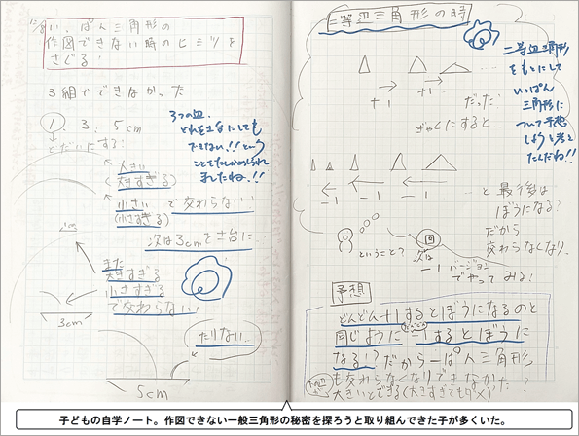 いっぱん三角形の
作図できない時のヒミツを
さぐる!
3組でできなかった
①. 3. 5cm
大きい
(大きすぎる)
小さい で交わらない!
(小さすぎる)
次は3cmを土台に..
また
大きすぎる
小さすぎる
で交わらない!
3cm
たりない..
5cm
3つの辺、
どれを土台にしても
できない!!という
ました!!
二等辺三角形の時
+1 +1
だった
ぎゃくにすると
-1 -1 -1
と最後は
ぼうになる?
だから
交わらなくなり..
ということ?
次は
-1 バージョン
でやってみる!
二等辺三角形
をもとにして
いっぱん
三角形に
ついて予想
しようと考え
たんだね!!
予想
どんどん+1するとぼうになるのと
同じように -1するとぼうに
なる!?だから一ぱん三角形
も交わらなくなりできなかった?
大きいとできる(大きすぎても✕)?
子どもの自学ノート。作図できない一般三角形の秘密を探ろうと取り組んできた子が多くいた。